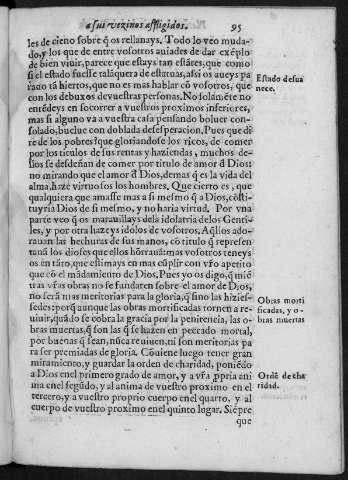 a sus vezinos affligidos. 95
les de cieno sobre q̃ os rellanays. Todo lo veo muda-
do, y los que de entre vosotros auiades de dar exẽplo
de bien viuir, parece que estays tan estãtes, que como
si el estado fuesse talãquera de estatuas, assi os aueys pa
rado tã hiertos, que no es mas hablar cõ vosotros, que
con los debuxos de vuestras personas. No solamẽte no
entẽdeys en socorrer a vuestros proximos inferiores,
mas si alguno va a vuestra casa pensando boluer con-
solado, buelue con doblada desesperacion. Pues que di
re de los pobres? que gloriandose los ricos, de comer
por los titulos de sus rentas y haziendas, muchos de-
llos se desdeñan de comer por titulo de amor d̃ Dios:
no mirando que el amor d̃ Dios, demas q̃ es la vida del
alma, haze virtuosos los hombres. Que cierto es, que
qualquiera que amasse mas a si mesmo q̃ a Dios, cõsti-
tuyria Dios de si mesmo, y no haria virtud. Por vna
parte veo q̃ os marauillays de la idolatria de los Genti-
les, y por otra haze ys idolos de vosotros, Aq̃llos ado-
rauan las hechuras de sus manos, cõ titulo q̃ represen
tauã los dioses que ellos hõrrauã: mas vosotros teneys
os en tãto, que estimays en mas cũplir con vr̃o apetito
que cõ el mãdamiento de Dios, Pues yo os digo, q̃ miẽ
tras vr̃as obras no se fundaren sobre el amor de Dios,
no serã mas meritorias para la gloria, q̃ sino las hizies-
sedes: porq̃ aunque las obras mortificadas tornen a re-
uiuir, quãdo se cobra la gracia por la penitencia, las o-
bras muertas, q̃ son las q̃ se hazen en peccado mortal,
por buenas q̃ sean, nũca reuiuen, ni son meritorias pa
ra ser premiadas de gloria. Cõuiene luego tener gran
miramiento, y guardar la orden de charidad, poniẽdo
a Dios en el primero grado de amor, y a vr̃a ppria ani
ma en el segũdo, y al anima de vuestro proximo en el
tercero, y a vuestro proprio cuerpo en el quarto, y al
cuerpo de vuestro proximo en el quinto lugar. Siẽpre
que
Estado desua
nece.
Obras morti
ficadas, y o-
bras muertas
Ordẽ de cha
ridad.